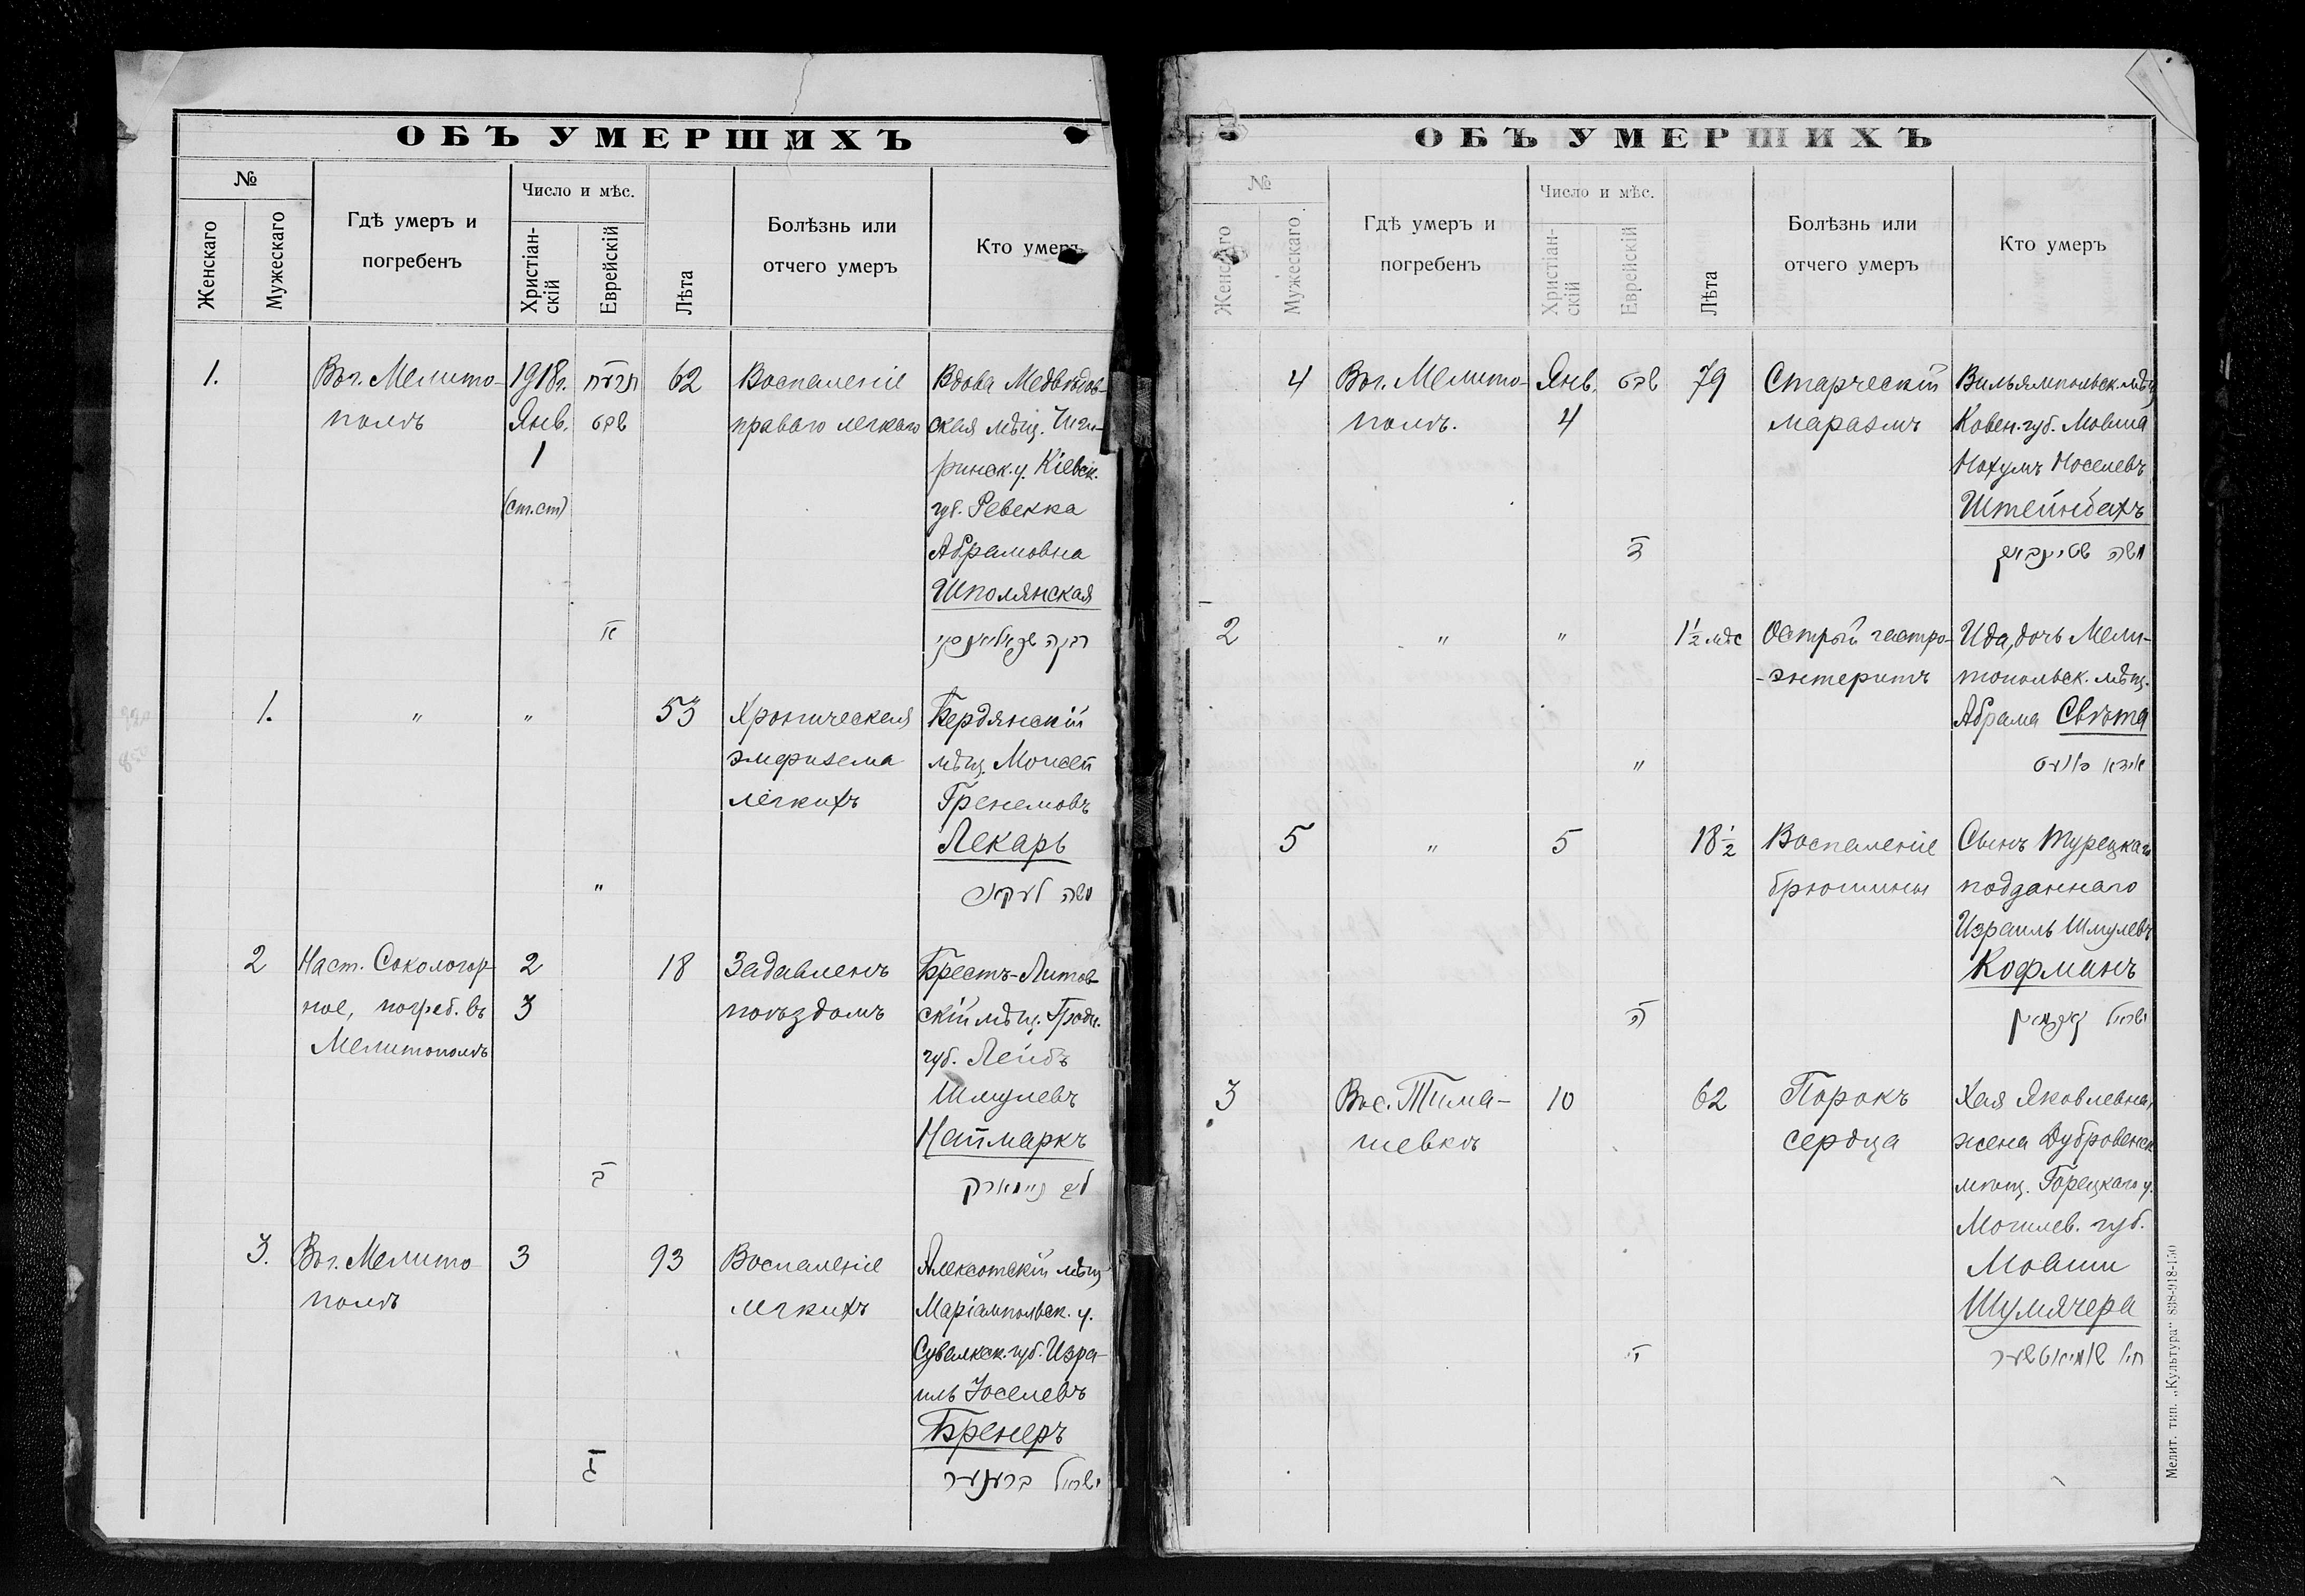 ОБЪ УМЕРШИХЪ
№
Женскаго
Мужескаго
Гдѣ умеръ и
погребенъ
Число и мѣс.
Христіан-
скій
Еврейскій
Лѣта
Болѣзнь или
отчего умеръ
Кто умеръ
1.
Въ г. Мелито-
полѣ
1918 г.
Янв.
1
(ст. ст)
שבט
62
Воспаленіе
праваго легкаго
Вдова Медвѣдов-
ская мѣщ. Чиги-
ринск. у. Кіевск.
губ. Ревекка
Абрамовна
Шполянская
1.
"
"
"
53
Хроническая
эмфизема
лёгкихъ
Бердянскій
мѣщ. Моисей
Лекарь
משה לעקאר
2
На ст. Сокологор-
ное, погреб. въ
Мелитополѣ
2
3
18
Задавленъ
поѣздомъ
Брестъ-Литов-
скій мѣщ. Гродн.
губ. Лейбъ
Шмулевъ
Наймаркъ
לייב ניימארק
3.
Въ г. Мелито
полѣ
3
93
Воспаленіе
легкихъ
Алексотскій мѣщ
Маріампольск. у.
Сувалкск. губ. Изра-
иль Іоселевъ
Бренеръ
ישראל ברענער
ОБЪ УМЕРШИХЪ
№
Женскаго
Мужескаго
Гдѣ умеръ и
погребенъ
Число и мѣс.
Христіан-
скій
Еврейскій
Лѣта
Болѣзнь или
отчего умеръ
Кто умеръ
4
Въ г. Мелито-
полѣ.
Янв.
4
שבט
79
Старческій
маразмъ
Вильямпольск. мѣщ
Ковен. губ. Мовша
Нохумъ Носелевъ
Штейнбахъ
2
"
"
"
1½ мѣс
Острый гастро-
-энтеритъ
Ида, дочь Мели-
топольск. мѣщ.
Абрама Свѣта
5
"
5
18½
Воспаленіе
брюшины
Сынъ Турецкаго
подданнаго
Израиль Шмулевъ
Кофманъ
ישראל קאפמאן
3
Въ с. Тима-
шевкѣ
10
62
Порокъ
сердца
Хая Яковлевна,
жена Дубровенск
мѣщ. Горецкаго у.
Могилев. губ.
Мовши
Шумячера
Мелит. тип. „Культура“ 838-918-150